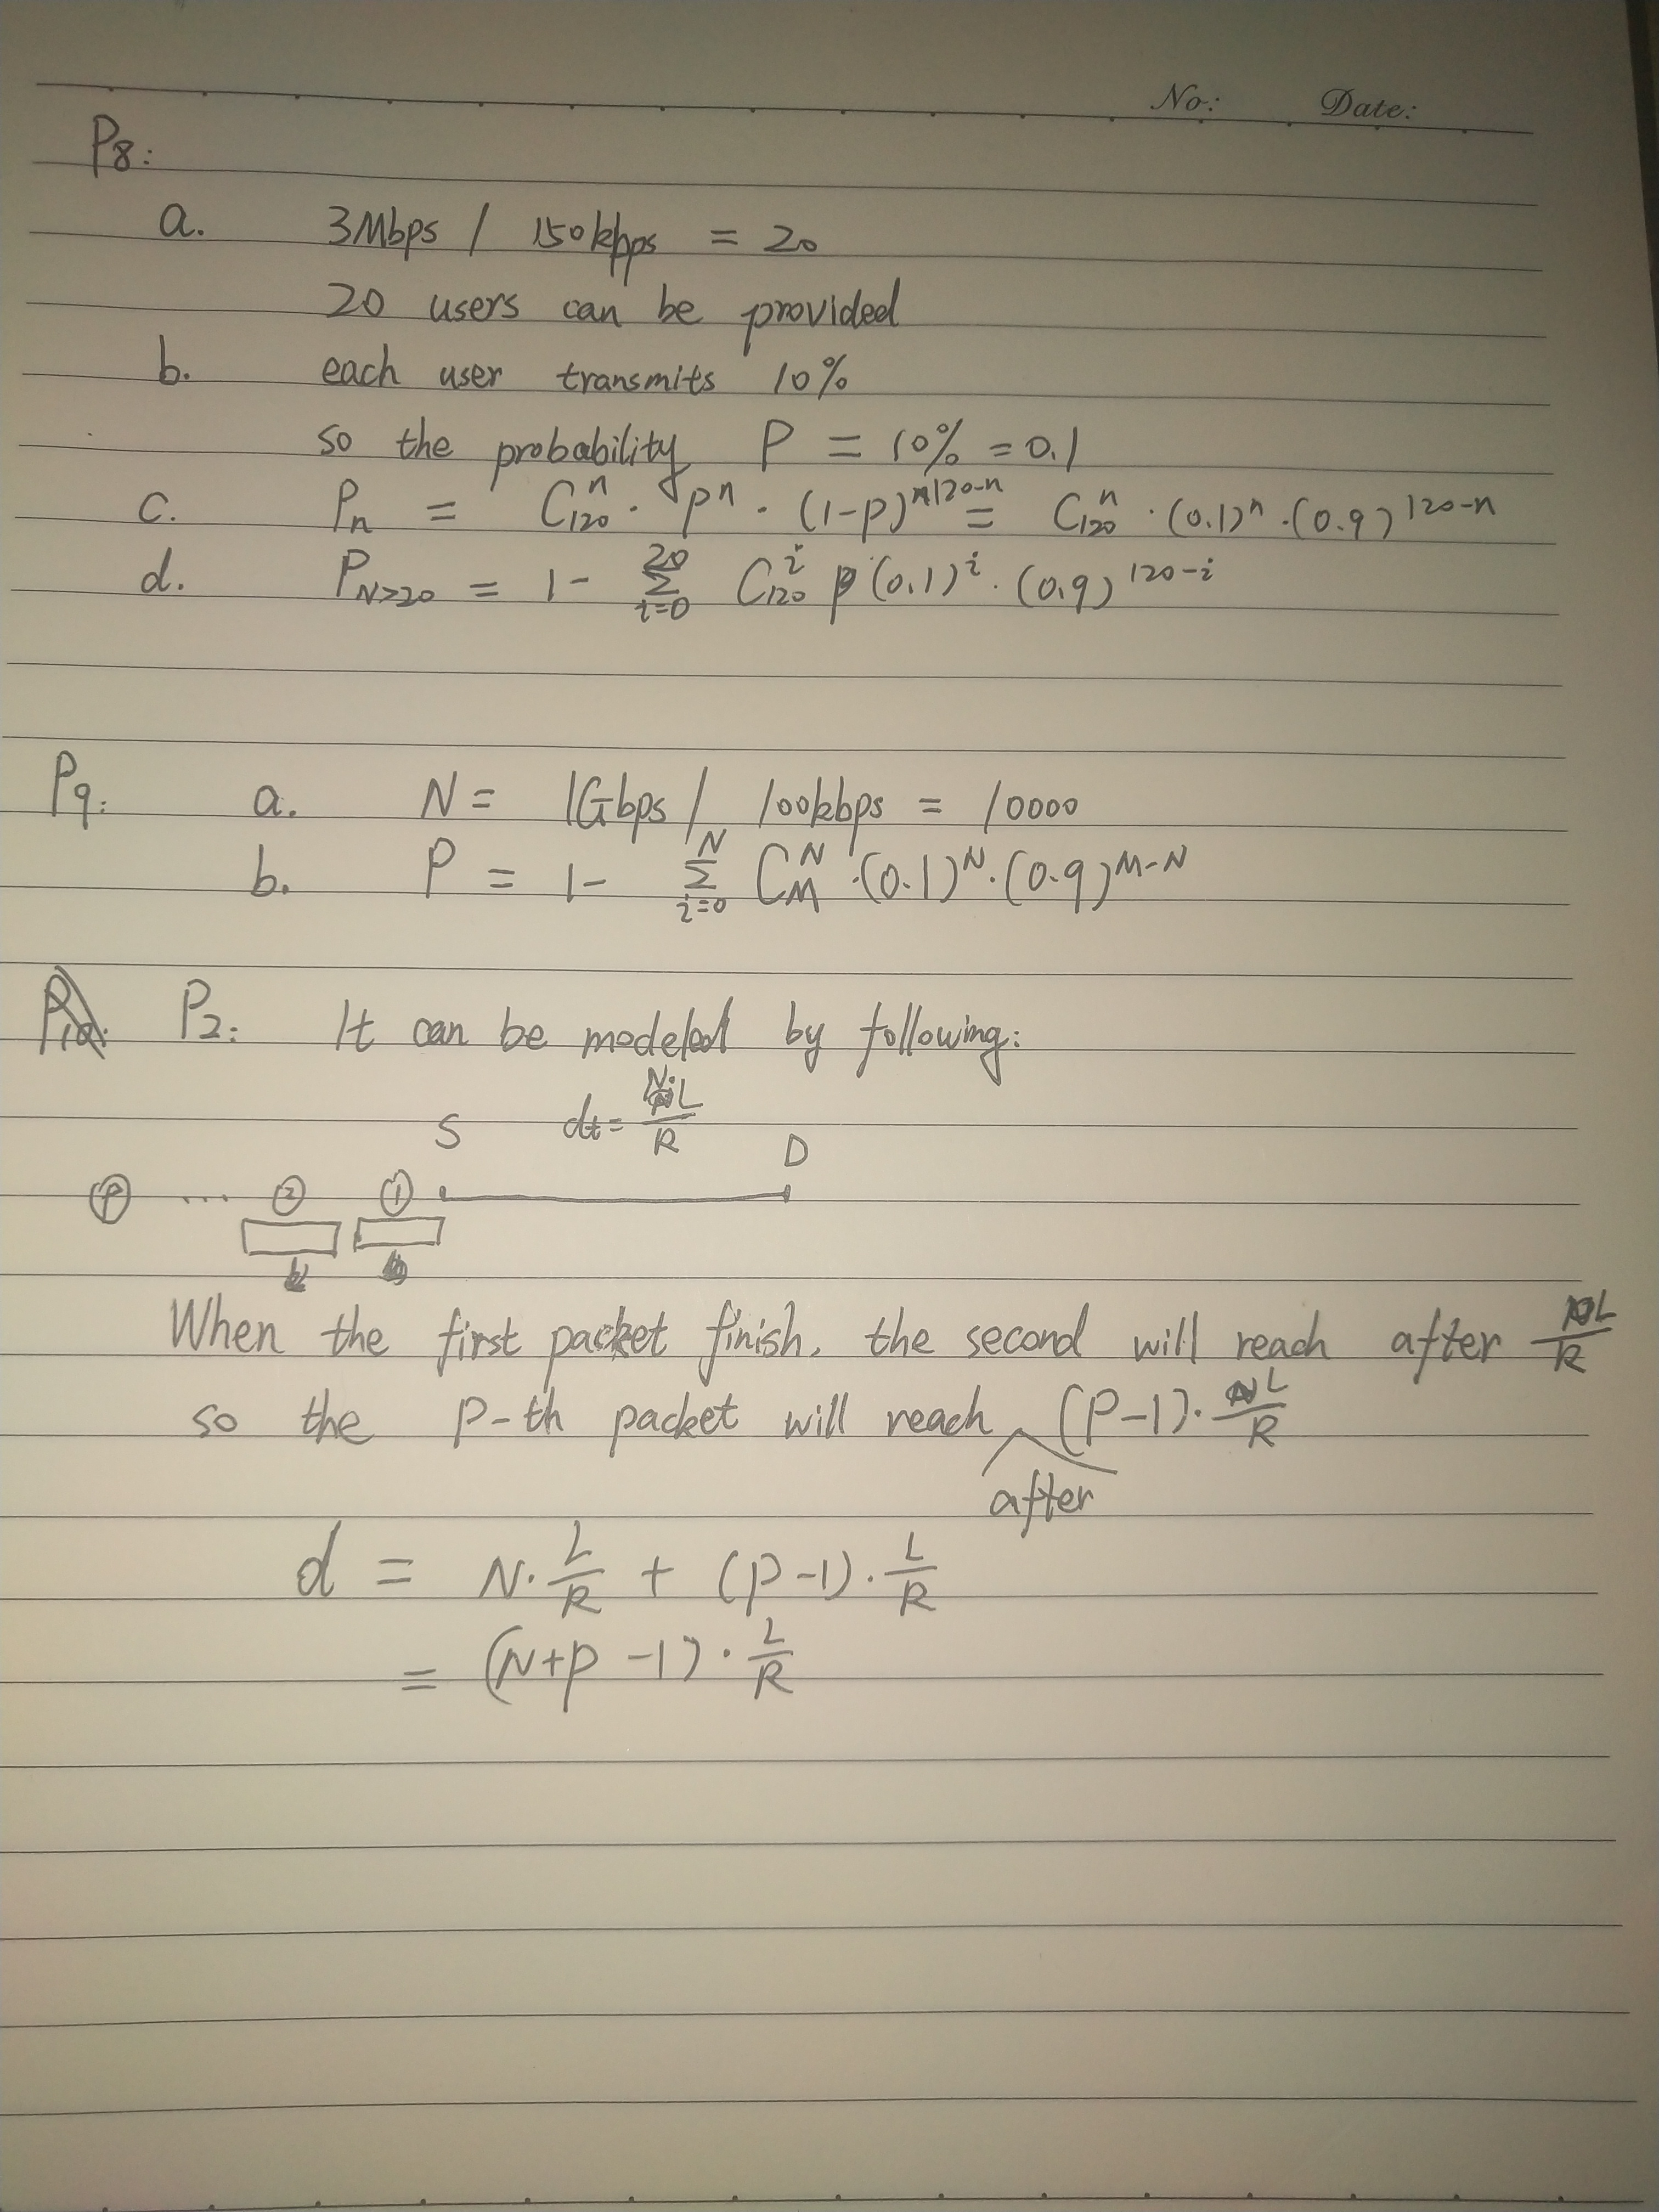 No: Date:
P8:
a. 3Mbps / 150kbps = 20
20 users can be provided
b. each user transmits 10%
so the probability P = 10% = 0.1
c. Pn = C₁₂₀ⁿ · pⁿ · (1-p)¹²⁰⁻ⁿ = C₁₂₀ⁿ · (0.1)ⁿ · (0.9)¹²⁰⁻ⁿ
d. P_{N>20} = 1 - Σ_{i=0}^{20} C_{120}^{i} (0.1)^{i} · (0.9)^{120-i}
P9: a. N = 1Gbps / 100kbps = 10000
b. P = 1 - Σ_{i=0}^{N} C_{M}^{N} · (0.1)^{N} · (0.9)^{M-N}
P2: It can be modeled by following:
S dt = L/R D
P ... 2 1
When the first packet finish, the second will reach after L/R
so the p-th packet will reach after (P-1) · L/R
d = N · L/R + (P-1) · L/R
= (N+P-1) · L/R